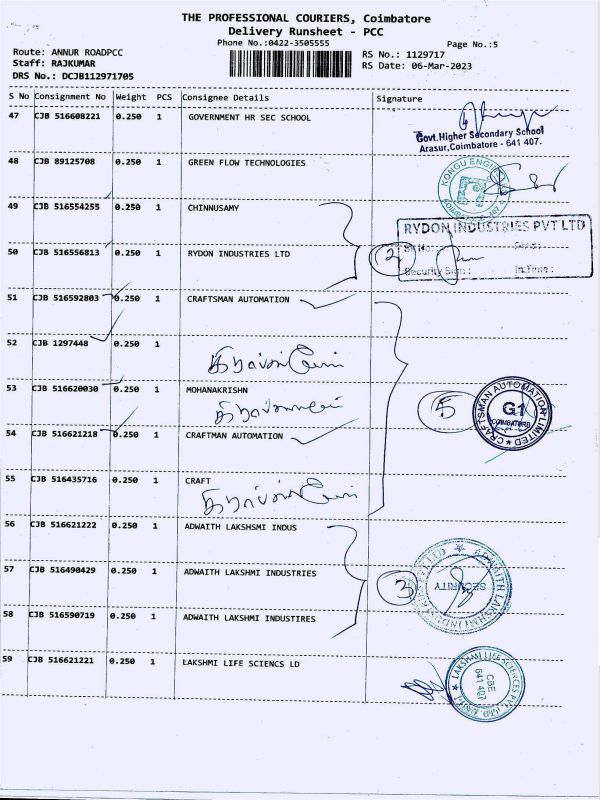 THE PROFESSIONAL COURIERS, Coimbatore
Delivery Runsheet - PCC
Phone No.:0422-3505555
Page No.:5
Route: ANNUR ROADPCC
RS No.: 1129717
Staff: RAJKUMAR
RS Date: 06-Mar-2023
DRS No.: DCJB112971705
S No Consignment No Weight PCS Consignee Details Signature
47 CJB 516608221 0.250 1 GOVERNMENT HR SEC SCHOOL
Govt.Higher Secondary School
Arasur,Coimbatore - 641 407.
48 CJB 89125708 0.250 1 GREEN FLOW TECHNOLOGIES
49 CJB 516554255 0.250 1 CHINNUSAMY
RYDON INDUSTRIES PVT LTD
50 CJB 516556813 0.250 1 RYDON INDUSTRIES LTD
2
Security Sign : In.Time :
51 CJB 516592803 0.250 1 CRAFTSMAN AUTOMATION
52 CJB 1297448 0.250 1
53 CJB 516620030 0.250 1 MOHANAKRISHN
5
CRAFTSMAN AUTOMATION LIMITED
G1
COIMBATORE
54 CJB 516621218 0.250 1 CRAFTMAN AUTOMATION
55 CJB 516435716 0.250 1 CRAFT
56 CJB 516621222 0.250 1 ADWAITH LAKSHSMI INDUS
57 CJB 516490429 0.250 1 ADWAITH LAKSHMI INDUSTRIES
3
ADWAITH LAKSHMI INDUSTRIES PVT LTD
SECURITY
58 CJB 516590719 0.250 1 ADWAITH LAKSHMI INDUSTIRES
59 CJB 516621221 0.250 1 LAKSHMI LIFE SCIENCS LD
LAKSHMI LIFE SCIENCES PVT. LTD.
CBE
641 407